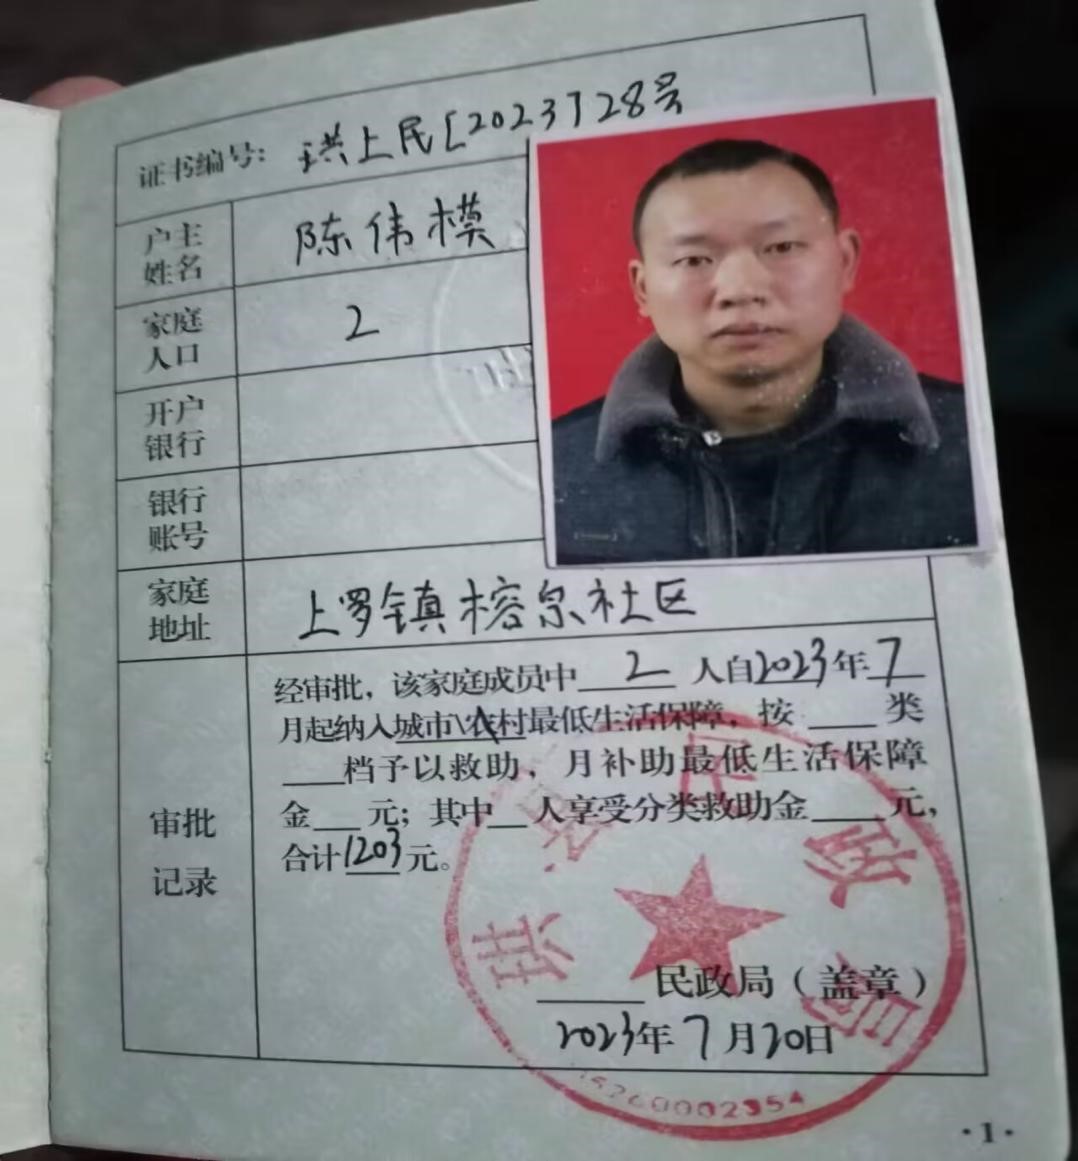 证书编号: 珙上民[2023]28号
户主姓名 陈伟模
家庭人口 2
开户银行
银行账号
家庭地址 上罗镇榕泉社区
审批记录
经审批，该家庭成员中 2 人自2023年7
月起纳入城市\农村最低生活保障，按____类
____档予以救助，月补助最低生活保障
金___元；其中__人享受分类救助金____元，
合计1203元。
____民政局（盖章）
2023年7月20日
珙县民政局
·1·